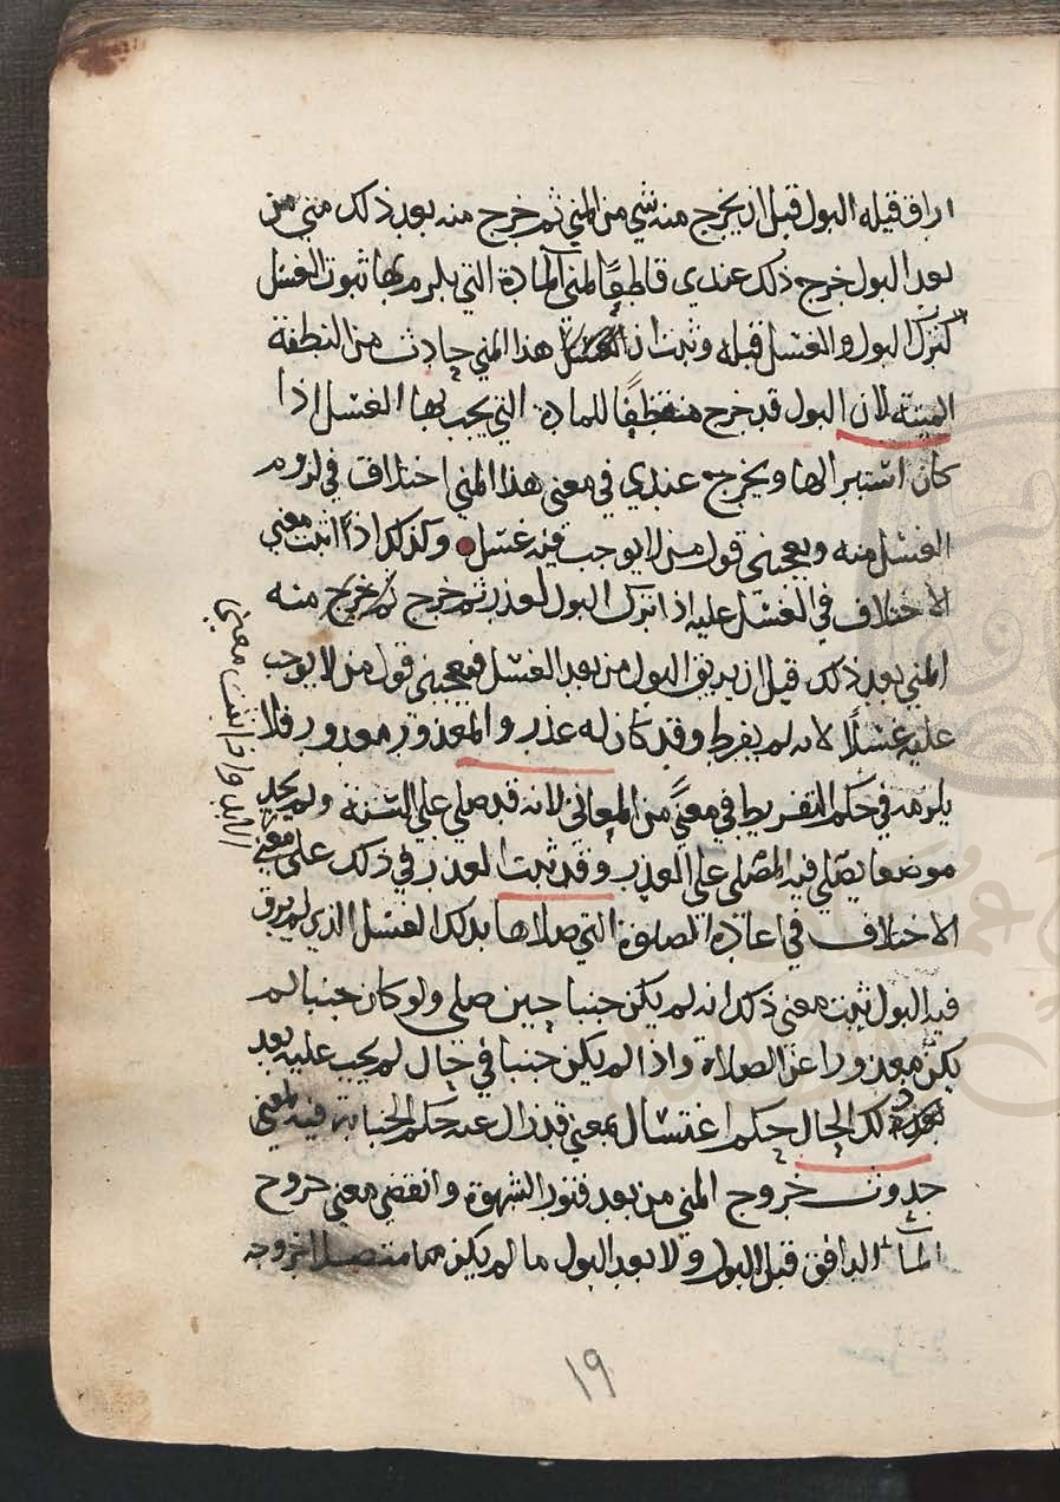 اراق قبله البول قبل ان يخرج منه شي من المني ثم خرج منه بعد ذلك مني من
بعد البول خرج ذلك عندي قاطعًا لمني المادة التي يلزم بها ثبوت الغسل
كترك البول والغسل قبله وثبت ان هذا المني حادث من النطفة
الميتة لان البول قد خرج للمادة التي يجب بها الغسل اذا
كان استبرالها ويخرج عندي في معنى هذا المني اختلاف في لزوم
الغسل منه ويعجبني قول من لا يوجب فيه غسل وكذلك اذا ثبت معنى
الاختلاف في الغسل عليه اذا ترك البول لعذر ثم خرج منه
المني بعد ذلك قبل ان يريق البول من بعد الغسل فيعجبني قول من لا يوجب
عليه غسلًا لانه لم يفرط وقد كان له عذر والمعذور معذور فلا
يلزمه في حكم التفريط في معنًى من المعاني لانه قد صلي علي السنة ولم يجد
موضعا يصلي فيه المصلى على العذر وقد ثبت العذر في ذلك على معني
الاختلاف في اعادة الصلوة التي صلاها بذلك الغسل الذي لم يرق
فيه البول ثبت معنى ذلك انه لم يكن جنبا حين صلى ولو كان جنبا لم
يكن معذورا عن الصلاة واذا لم يكن جنبا في حال لم يجب عليه بعد
ذلك الحال حكم اغتسال بمعنى قد زال عنه حكم الجنابة فيه لمعنى
حدوث خروج المني من بعد فتور الشهوة وانقضى معنى خروج
الماء الدافق قبل البول ولا بعد البول ما لم يكن مما متصلا لخروجه
١٩